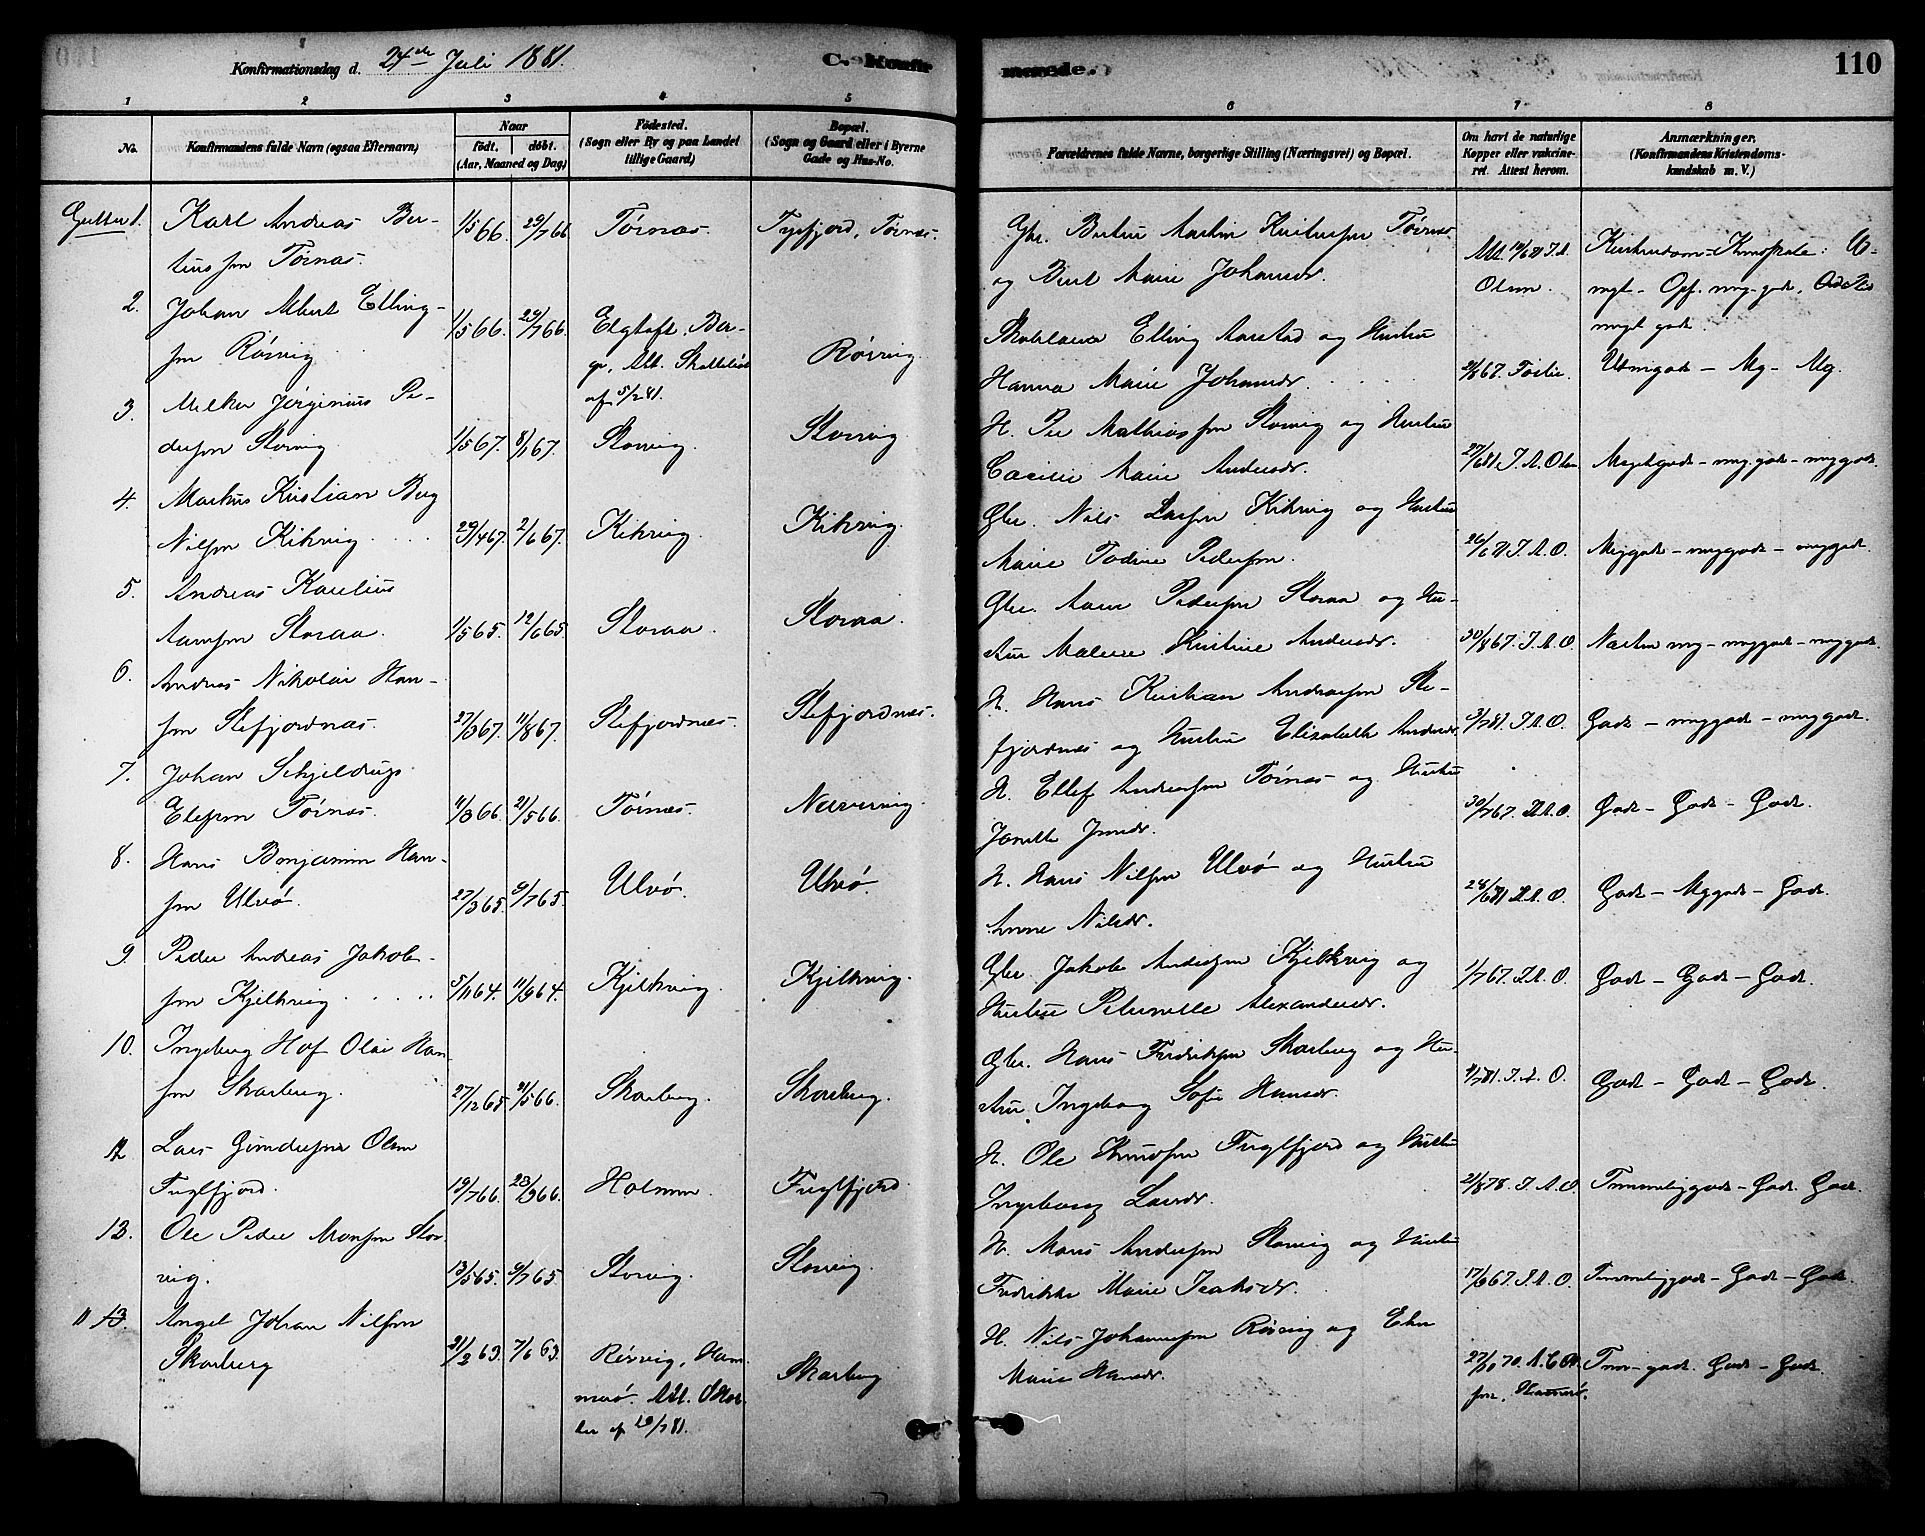 Konfirmationsdag d. 24de Juli 1881.
C. Konfir
marede.
110
1 2 3 4 5 6 7 8
No.
Konfirmandens fulde Navn (ogsaa Efternavn)
Naar
födt. döbt.
(Aar, Maaned og Dag)
Födested.
(Sogn eller By og paa Landet
tillige Gaard)
Bopæl.
(Sogn og Gaard eller i Byerne
Gade og Hus-No.
Forældrenes fulde Navne, borgerlige Stilling (Næringsvei) og Bopæl.
Om havt de naturlige
Kopper eller vaccine-
ret. Attest herom.
Anmærkninger.
(Konfirmandens Kristendoms-
kundskab m. V.)
Gutter 1. Karl Andreas Ber-
tinssen Tórnæs.
1/5 66. 29/7 66. Tórnæs. Tysfjord, Tórnæs.
og Berit Marie Johansdr.
Olsen.
2. Johan Albert Elling-
sen Rórvig
1/5 66. 29/7 66. Elgtoft, Ber-
af 5/2 81.
Rórvig
Elling Aarstad og Hustru
Hanna Marie Johansdr.
Udmgodt - Mg - Mg.
3. Melker Jörginius Pe-
dersen Storvig
1/5 67. 8/1 67. Storvig. Storvig.
H. Per Mathiassen Storvig og Hustru
Cæcilie Marie Andersdr.
27/6 81. J. A. Olsen Megetgodt - myggodt - myggodt.
4. Markus Kristian Berg
Nilsen Kikvig
29/4 67. 2/6 67. Kikvig. Kikvig.
Gbr. Nils Larsen Kikvig og Hustru
Marie Pedersen.
26/6 81 J. A. O. Myggodt - myggodt - myggodt.
5. Andreas Karelius
Aansen Storaa.
1/5 65. 12/6 65. Storaa. Storaa.
Gbr. Pedersen Storaa og Hu-
stru Malene Kristine Andersdr.
30/8 67. J. A. O. Næsten mg - myggodt - myggodt.
6. Andreas Nikolai Han-
sen Stefjordnæs.
27/3 67. 11/8 67. Stefjordnæs. Stefjordnæs.
H. Hans Kristian Andreassen Ste-
fjordnæs og Hustru Elisabeth Andersdr.
3/7 81. J. A. O. Godt - myggodt - myggodt.
7. Johan Schjeldrup
Elefsen Tórnæs.
11/3 66. 21/5 66. Tórnæs.
H. Ellef Andersen Tórnæs og Hustru
Jonette Jensdr.
30/7 67. J. A. O. Godt - Godt - Godt.
8. Hans Benjamin Han-
sen Ulvö.
27/3 65. 9/7 65. Ulvö. Ulvö
H. Hans Nilsen Ulvö og Hustru
Anne Nilsdr.
28/6 81 J. A. O. Godt - Mggodt - Godt.
9. Peder Andreas Jakob-
sen Kjelkvig
5/11 64. 11/9 64. Kjelkvig. Kjelkvig.
Gbr. Jakob Andersen Kjelkvig og
Hustru Peternelle Alexandersdr.
1/7 67. J. A. O. Godt - Godt - Godt.
10. Ingeberg Hof Olai Han-
sen Skarberg.
27/12 65. 21/5 66. Skarberg. Skarberg.
Gbr. Hans Fredriksen Skarberg og Hu-
stru Ingeborg Sofie Hansdr.
J. A. O. Godt - Godt - Godt.
12. Lars Olsen
Fuglfjord.
19/7 66. 23/9 66. Holmen. Fuglfjord.
H. Ole Knudsen Fuglfjord og Hustru
Ingeborg Larsdr.
21/8 78. J. A. O Temmeliggodt - Godt Godt.
13. Ole Peder Monsen Stor-
vig.
13/5 65. 9/7 65. Storvig. Storvig.
H. Mons Andersen Storvig og Hustru
Fredrikke Marie Isaksdr.
17/9 67. J. A. O. Temmeliggodt - Godt - Godt.
11 13. Angel Johan Nilsen
Skarberg
21/2 63. 7/6 63. Rórvig, Ham-
marö. Att.
af 20/7 81.
Skarberg
H. Nils Johannesen Rórvig og
Marie Hansdr.
Tem-godt. Godt - Godt.
sen, Hammerö.